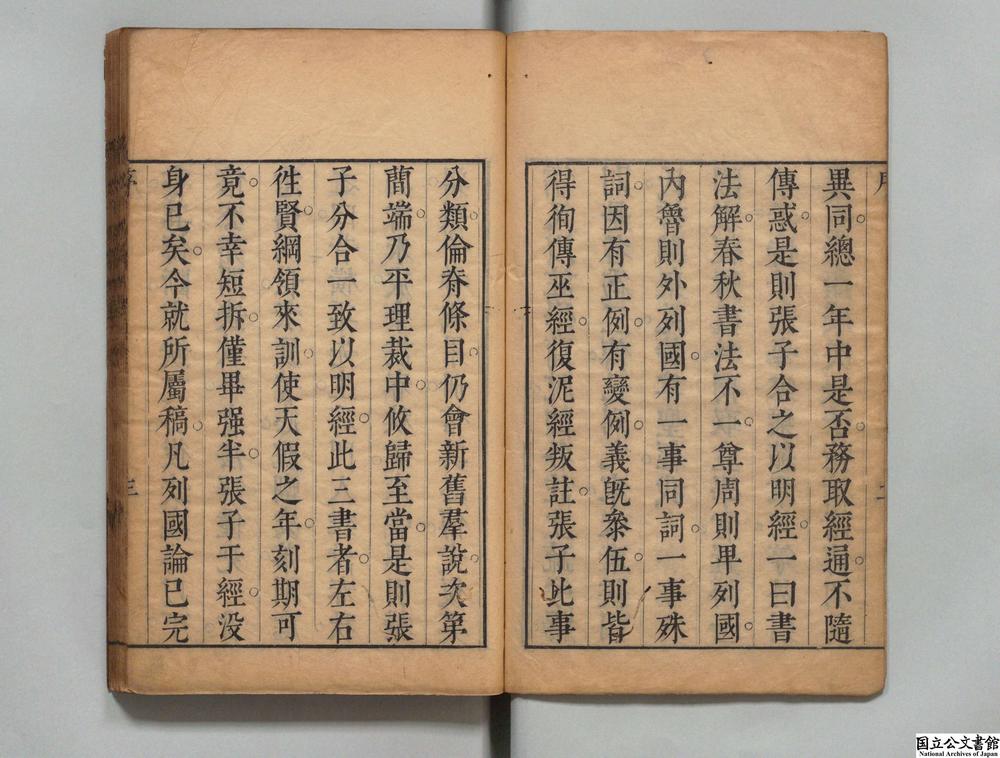 異同。總一年中是否。務取經通。不隨
傳惑。是則張子合之以明經。一曰書
法解。春秋書法不一。尊周則卑列國。
內魯則外列國。有一事同詞。一事殊
詞。因有正例。有變例。義旣叅伍。則皆
得徇傳巫經。復泥經叛註。張子此事
分類倫脊。條目仍會新舊羣說。次第
蕑端。乃平理裁中。攸歸至當。是則張
子分合一致以明經。此三書者。左右
徃賢。綱領來訓。使天假之年。刻期可
竟。不幸短拆。僅畢强半。張子于經。没
身已矣。今就所屬稿。凡列國論已完
序
三
国立公文書館
National Archives of Japan